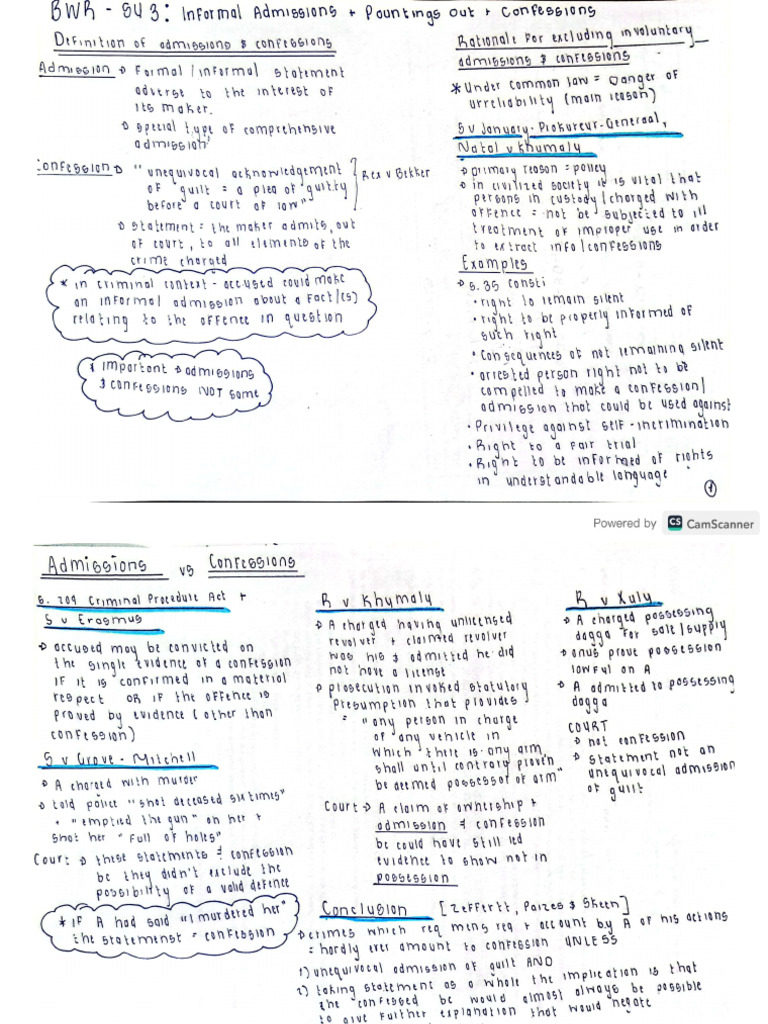 BWR - SU 3: Informal Admissions + Pountings out + Confessions
Definition of admissions & confessions
Admission → Formal / informal statement
adverse to the interest of
its maker.
→ special type of comprehensive
admission"
Confession → "unequivocal acknowledgement
of guilt = a plea of guilty
before a court of law"
Rex v Bekker
→ statement = the maker admits, out
of court, to all elements of the
crime charged
* in criminal context - accused could make
an informal admission about a fact/(s)
relating to the offence in question
* important → admissions
& confessions NOT same
Rationale for excluding involuntary
admissions & confessions
* Under common law = Danger of
urreliability (main reason)
S v January- Prokureur-Generaal,
Natal v Khumalo
→ primary reason = policy
→ in civilized society it is vital that
persons in custody/charged with
offence = not be subjected to ill
treatment of improper use in order
to extract info/confessions
Examples
→ s. 35 consti
• right to remain silent
• right to be properly informed of
such right
• Consequences of not remaining silent
• arrested person right not to be
compelled to make a confession/
admission that could be used against
• Privilege against self-incrimination
• Right to a fair trial
• Right to be informed of rights
in understandable language
1
Powered by CS CamScanner
Admissions vs Confessions
s. 209 Criminal Procedure Act +
S v Erasmus
→ accused may be convicted on
the single evidence of a confession
IF it is confirmed in a material
respect OR if the offence is
proved by evidence (other than
confession)
S v Grove-Mitchell
→ A charged with murder
→ told police "shot deceased six times"
+ "emptied the gun" on her +
shot her "full of holes"
Court → these statements ≠ confession
bc they didn't exclude the
possibility of a valid defence
* IF A had said "I murdered her"
the statemenst = confession
R v Khumalo
→ A charged having unlicensed
revolver + claimed revolver
was his & admitted he did
not have a license
→ prosecution invoked statutory
presumption that provides
= "any person in charge
of any vehicle in
which there is any arm
shall until contrary proven
be deemed possessor of arm"
Court → A claim of ownership +
admission ≠ confession
bc could have still led
evidence to show not in
possession
R v Xulu
→ A charged possessing
dagga for sale/supply
→ onus prove possession
lawful on A
→ A admitted to possessing
dagga
COURT
→ not confession
→ statement not an
unequivocal admission
of guilt
Conclusion [Zeffertt, Paizes & Skeen]
→ crimes which req mens rea + account by A of his actions
= hardly ever amount to confession UNLESS
1) unequivocal admission of guilt AND
2) taking statement as a whole the implication is that
the confessed bc would almost always be possible
to give further explanation that would negate